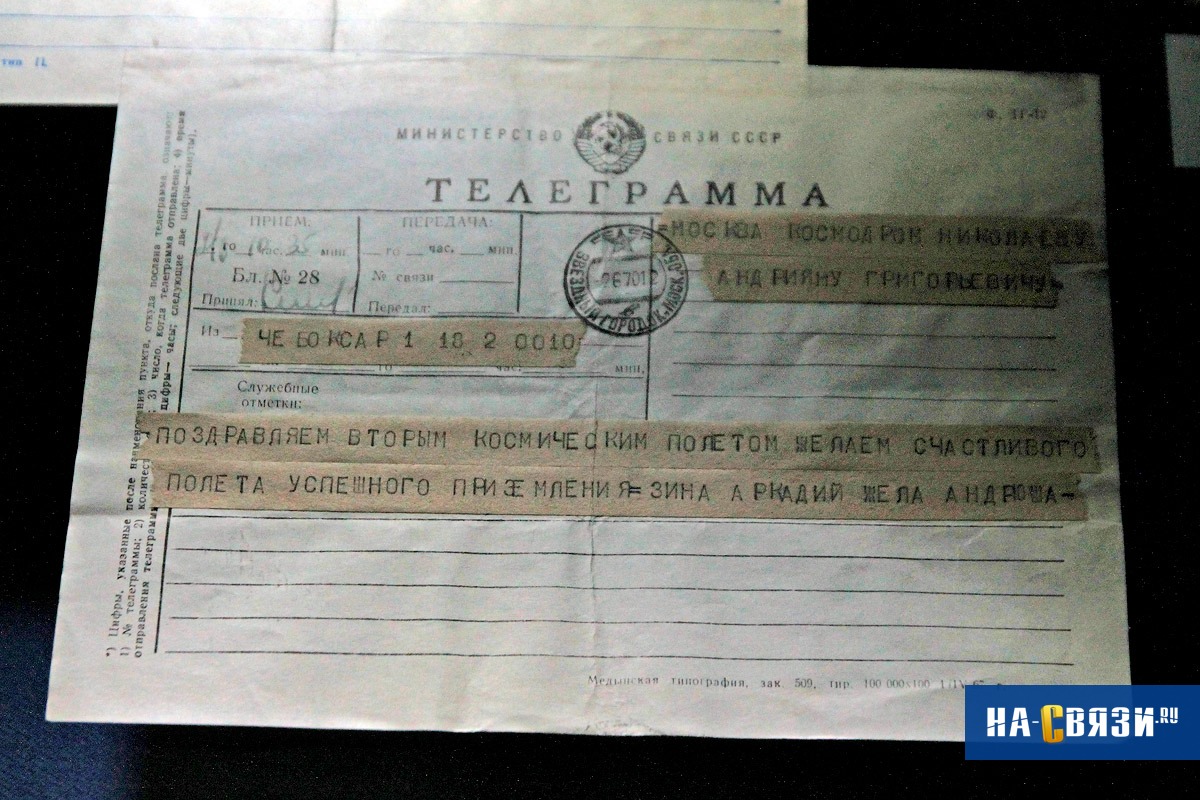 тип II.
Ф. ТГ-42
МИНИСТЕРСТВО СВЯЗИ СССР
ТЕЛЕГРАММА
ПРИЕМ:
го час. 35 мин.
Бл. № 28
Принял:
ПЕРЕДАЧА:
го час. мин
№ связи
Передал:
ЗВЕЗДНЫЙ ГОРОДОК, МОСК. ОБЛ.
=МОСКВА КОСМОДРОМ НИКОЛАЕВУ
АНДРИЯНУ ГРИГОРЬЕВИЧУ
Из
ЧЕБОКСАР 1 18 2 0010
го час. мин.
Служебные
отметки:
ПОЗДРАВЛЯЕМ ВТОРЫМ КОСМИЧЕСКИМ ПОЛЕТОМ ЖЕЛАЕМ СЧАСТЛИВОГО
ПОЛЕТА УСПЕШНОГО ПРИЗЕМЛЕНИЯ=ЗИНА АРКАДИЙ ЖЕЛА АНДРЮША-
*) Цифры, указанные после наименования пункта, откуда послана телеграмма означают:
1) № телеграммы; 2) количество 3) число, когда телеграмма отправлена; 4) время
отправления телеграммы цифры— часы; следующие две цифры—минуты).
Медынская типография, зак. 509, тир. 100 000х100
НА-СВЯЗИ.RU